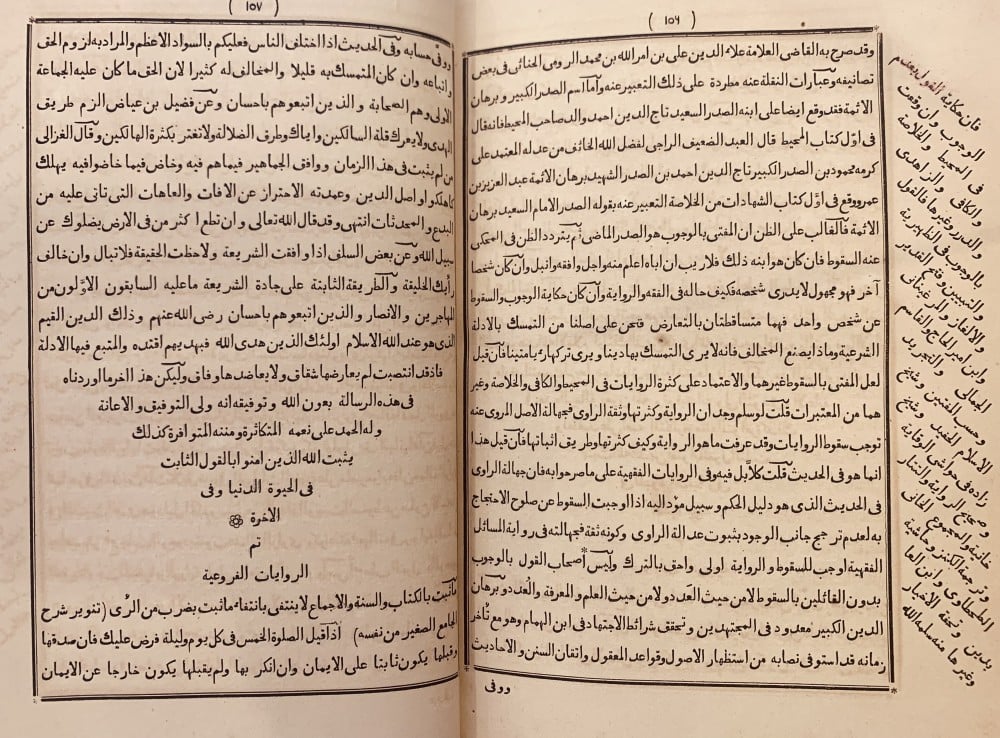 ( ١٥٦ )
وقد صرح به القاضى العلامة علاء الدين على بن امر الله بن محمد الرومى الحنائى فى بعض
تصانيفه وعبارات النقلة عنه مطردة على ذلك التعبير عنه وأما اسم الصدر الكبير وبرهان
الائمة فقد وقع ايضا على ابنه الصدر السعيد تاج الدين احمد والد صاحب المحيط فانه قال
فى اول كتاب المحيط قال العبد الضعيف الراجى لفضل الله الخائف من عدله المعتمد على
كرمه محمود بن الصدر الكبير تاج الدين احمد بن الصدر الشهيد برهان الائمة عبد العزيز بن
عمر ووقع فى اول كتاب الشهادات من الخلاصة التعبير عنه بقوله الصدر الامام السعيد برهان
الائمة فالغالب على الظن ان المفتى بالوجوب هو الصدر الماضى ثم يتردد الظن فى المحكى
عنه السقوط فان كان هو ابنه ذلك فلا ريب ان اباه اعلم منه واجل وافقه وانبل وان كان شخصا
آخر فهو مجهول لا يدرى شخصه فكيف حاله فى الفقه والرواية وان كان حكاية الوجوب والسقوط
عن شخص واحد فهما متساقطتان بالتعارض فنحن على اصلنا من التمسك بالادلة
الشرعية وماذا يصنع المخالف فانه لا يرى التمسك بها دينا ويرى تركها رأيا متينا فان قيل
لعل المفتى بالسقوط غيرهما والاعتماد على كثرة الروايات فى المحيط والكافى والخلاصة وغير
هما من المعتبرات قلت لو سلم وجد ان الرواية وكثرتها وثقة الراوى فجهالة الاصل المروى عنه
توجب سقوط الروايات وقد عرفت ما هو الرواية وكيف كثرتها وطريق اثباتها فان قيل هذا
انما هو فى الحديث قلت كلا بل فيه وفى الروايات الفقهية على ما صرحوا به فان جهالة الراوى
فى الحديث الذى هو دليل الحكم وسبيل مؤد اليه اذا اوجبت السقوط عن صلوح الاحتجاج
به لعدم ترجح جانب الوجود بثبوت عدالة الراوى وكونه ثقة فجهالته فى رواية المسائل
الفقهية اوجب للسقوط والرواية اولى واحق بالترك وليس اصحاب القول بالوجوب
بدون القائلين بالسقوط لا من حيث العدد ولا من حيث العلم والمعرفة والعدد وبرهان
الدين الكبير معدود فى المجتهدين وتحقق شرائط الاجتهاد فى ابن الهمام وهو مع تأخر
زمانه قد استوفى نصابه من استظهار الاصول وقواعد المعقول واتقان السنن والاحاديث
ووفى
فان حكاية القول بعدم
الوجوب وان وقعت
فى المحيط والخلاصة
والكافى والزاهدى
والدرر وغيرها فالقول
بالوجوب فى الظهيرية
والتبيين وفتح القدير
والالغاز والمرغينانى
وابن امير الحاج والقاسم
الجمالى والتجريد
وحسب المفتين وشيخ
الاسلام الحفيد وشيخ
زاده فى حواشى الوقاية
وصحح الرواية والتتار
خانية والمجموع الخانى
وترجمة الكنز وحاشية
الطحطاوى وابن العا
بدين وتحفة الاخيار
وغيرها منه سلمه الله
( ١٥٧ )
ووفى حسابه وفى الحديث اذا اختلف الناس فعليكم بالسواد الاعظم والمراد به لزوم الحق
واتباعه وان كان المتمسك به قليلا والمخالف له كثيرا لان الحق ما كان عليه الجماعة
الاولى وهم الصحابة والذين اتبعوهم باحسان وعن فضيل بن عياض الزم طريق
الهدى ولا يغرك قلة السالكين واياك وطرق الضلالة ولا تغتر بكثرة الهالكين وقال الغزالى
من لم يثبت فى هذا الزمان ووافق الجماهير فيما هم فيه وخاض فيما خاضوا فيه يهلك
كما هلكوا واصل الدين وعمدته الاحتراز عن الافات والعاهات التى تاتى عليه من
البدع والمحدثات انتهى وقد قال الله تعالى وان تطع اكثر من فى الارض يضلوك عن
سبيل الله وعن بعض السلف اذا وافقت الشريعة ولاحظت الحقيقة فلا تبال وان خالف
رأيك الخليقة والطريقة الثابتة على جادة الشريعة ما عليه السابقون الاولون من
المهاجرين والانصار والذين اتبعوهم باحسان رضى الله عنهم وذلك الدين القيم
الذى هو عند الله الاسلام اولئك الذين هدى الله فبهديهم اقتده والمتبع فيها الادلة
فاذ قد انتصبت لم يعارضها شقاق ولا يعاضدها وفاق وليكن هذا آخر ما اوردناه
فى هذه الرسالة بعون الله وتوفيقه انه ولى التوفيق والاعانة
وله الحمد على نعمه المتكاثرة ومننه المتوافرة كذلك
يثبت الله الذين امنوا بالقول الثابت
فى الحيوة الدنيا وفى
الاخرة
تم
الروايات الفروعية
ما ثبت بالكتاب والسنة والاجماع لا ينتفى بانتفاء ما ثبت بضرب من الرأى (تنوير شرح
الجامع الصغير من نفسه) اذا قيل الصلوة الخمس فى كل يوم وليلة فرض عليك فان صدقها
وقبلها يكون ثابتا على الايمان وان انكر بها ولم يقبلها يكون خارجا عن الايمان